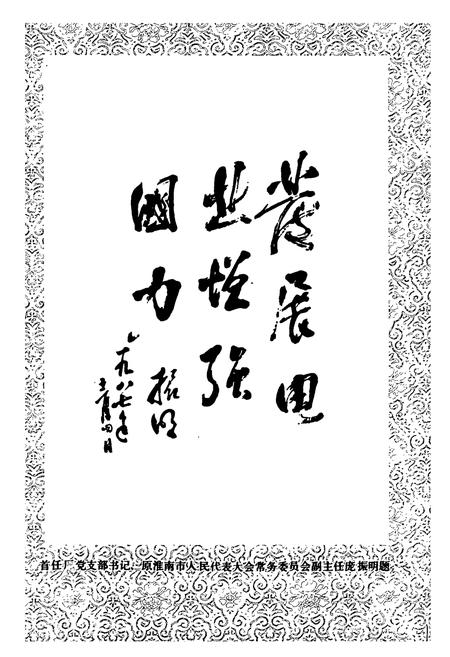 發展电
业增强
國力
振明
一九八七年
月四日
首任厂 党支部书记、原淮南市人民代表大会常务委员会副主任庞 振明题。